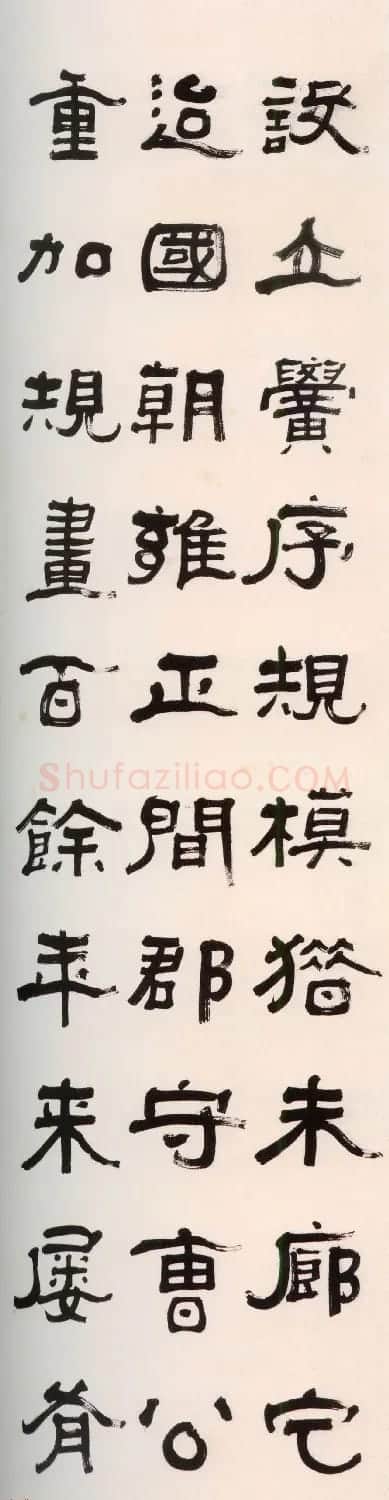 設立黌序規模猶未廓它
迨國朝雍正間郡守曹公
重加規畫百餘年来屢有
Shufaziliao.COM